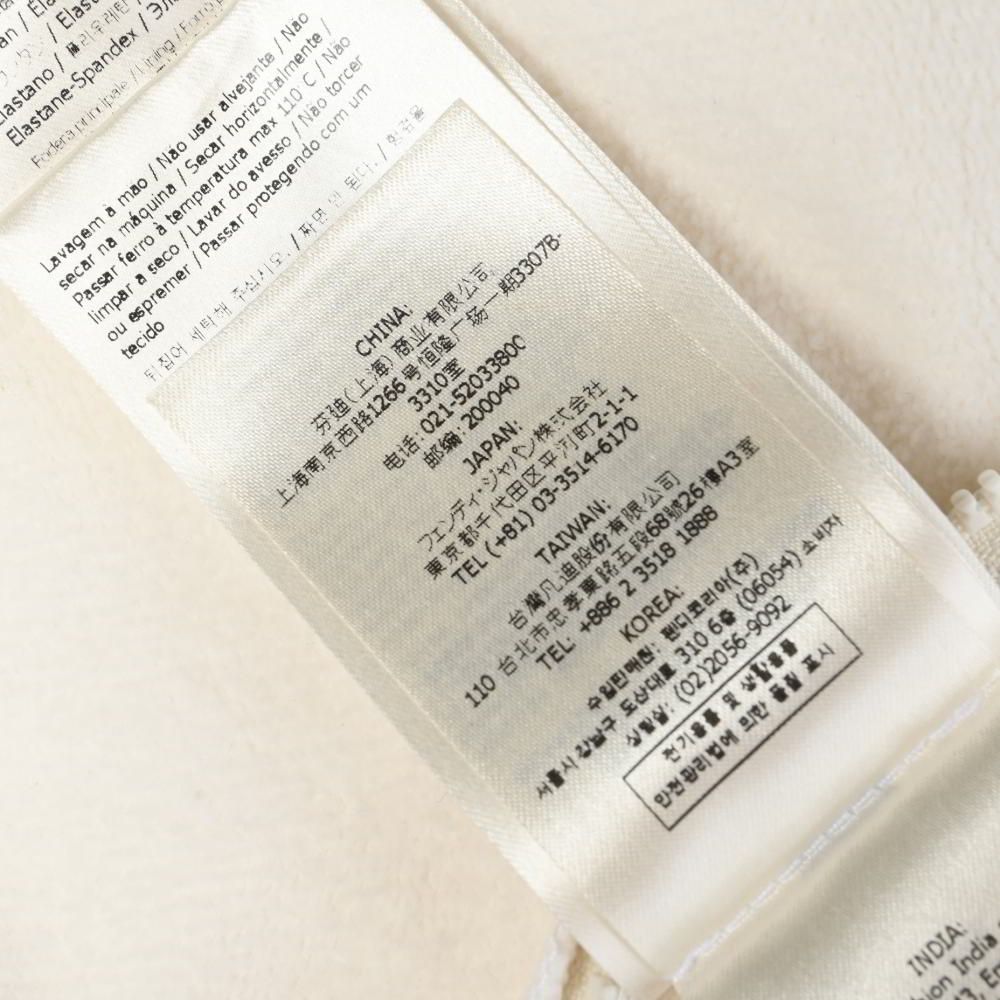 Elastano / Elastane-Spandex /
Fodera principale / Lining /
Lavagem à mão / Não usar alvejante / Não
secar na máquina / Secar horizontalmente /
Passar ferro à temperatura max 110 C / Não
limpar a seco / Lavar do avesso / Não torcer
ou espremer / Passar protegendo com um
tecido
뒤집어 세탁해 주십시오. / 짜면 안 된다. / 헝겊을
CHINA:
芬迪(上海) 商业有限公司
上海南京西路1266号恒隆广场一期3307B-
3310室
电话: 021-52033800
邮编: 200040
JAPAN:
フェンディ・ジャパン株式会社
東京都千代田区平河町2-1-1
TEL (+81) 03-3514-6170
TAIWAN:
台灣凡迪股份有限公司
110 台北市忠孝東路五段68號26樓A3室
TEL: +886 2 3518 1888
KOREA:
수입판매원: 펜디코리아(주)
서울시 강남구 도산대로 310 6층 (06054) 소비자
상담실: (02)2056-9092
전기용품 및 생활용품
안전관리법에 의한 품질 표시
INDIA:
India